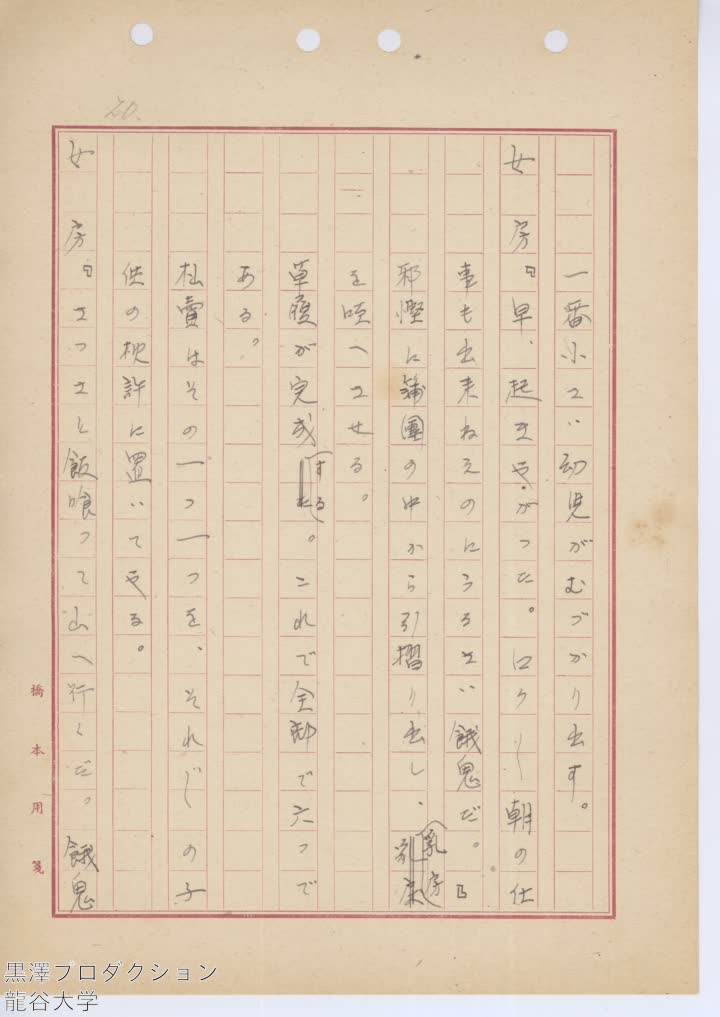 20.
一番小さい幼児がむづかり出す。
女房「早、起きやがつた。ロク〳〵朝の仕
事も出来ねえのにうるさい餓鬼だ。」
邪慳に蒲團の中から引摺り出し、乳房
を頃へさせる。
草履が完成する。これで全部で六つで
ある。
杜賣はその一つ一つを、それ〴〵の子
供の枕許に置いてやる。
女房「さつさと飯喰って山へ行くだ。餓鬼
橋本用箋
黒澤プロダクション
龍谷大学